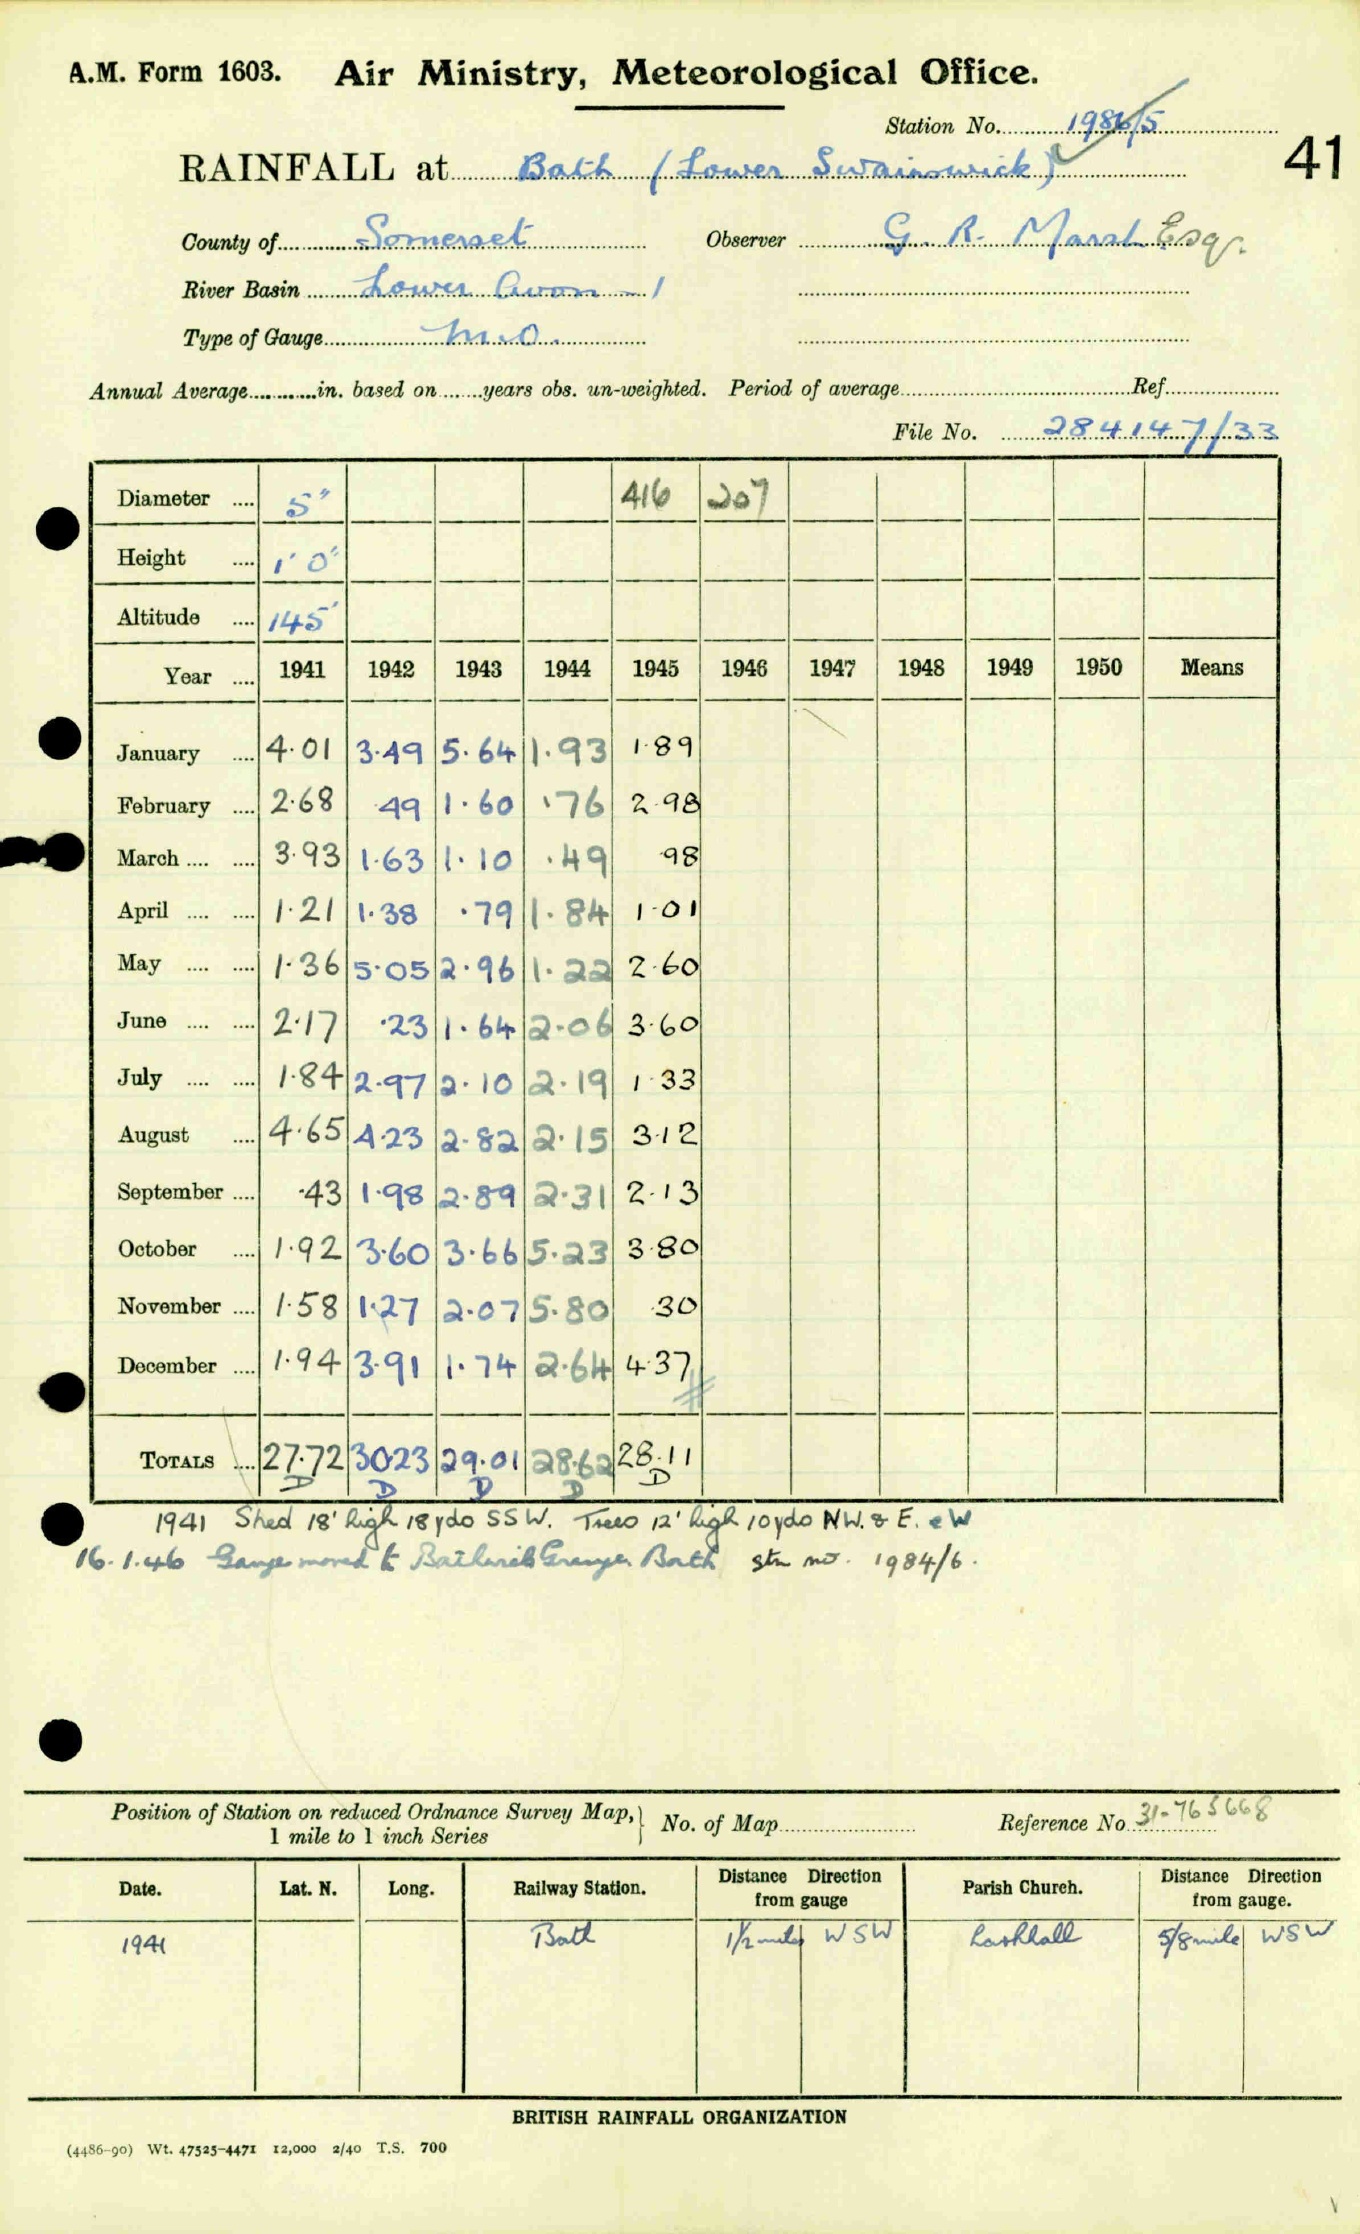 A.M. Form 1603. Air Ministry, Meteorological Office.
Station No. 1986/5
41
RAINFALL at Bath (Lower Swainswick)
County of Somerset Observer G. R. Marsh Esq.
River Basin Lower Avon - 1
Type of Gauge M.O.
Annual Average in. based on years obs. un-weighted. Period of average Ref.
File No. 284147/33
Diameter 5" 416 207
Height 1' 0"
Altitude 145'
Year 1941 1942 1943 1944 1945 1946 1947 1948 1949 1950 Means
January 4.01 3.49 5.64 1.93 1.89
February 2.68 .49 1.60 .76 2.98
March 3.93 1.63 1.10 .49 .98
April 1.21 1.38 .79 1.84 1.01
May 1.36 5.05 2.96 1.22 2.60
June 2.17 .23 1.64 2.06 3.60
July 1.84 2.97 2.10 2.19 1.33
August 4.65 4.23 2.82 2.15 3.12
September .43 1.98 2.89 2.31 2.13
October 1.92 3.60 3.66 5.23 3.80
November 1.58 1.27 2.07 5.80 .30
December 1.94 3.91 1.74 2.64 4.37
TOTALS 27.72 30.23 29.01 28.62 28.11
D D D D D
1941 Shed 18' high 18 yds SSW. Trees 12' high 10 yds NW. & E. & W
16.1.46 Gauge moved to Bath stn no. 1984/6.
Position of Station on reduced Ordnance Survey Map, 1 mile to 1 inch Series } No. of Map Reference No 31-765668
Date. Lat. N. Long. Railway Station. Distance Direction from gauge Parish Church. Distance Direction from gauge.
1941 Bath 1½ miles WSW 5/8 mile WSW
BRITISH RAINFALL ORGANIZATION
(4486-90) Wt. 47525-4471 12,000 2/40 T.S. 700